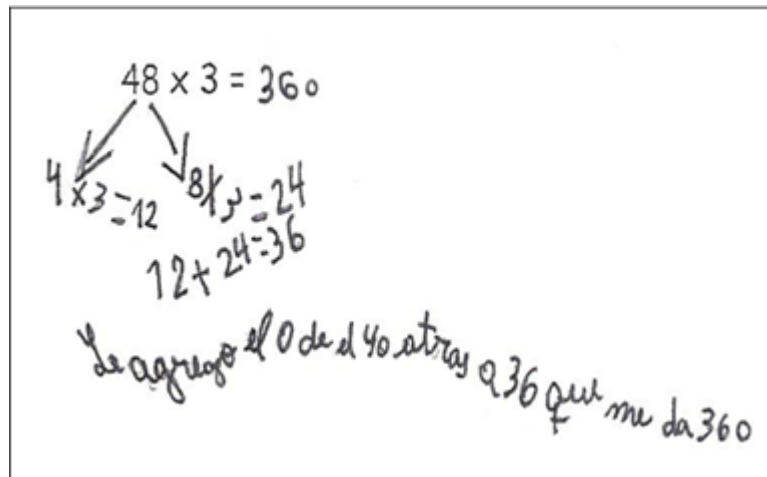 48 x 3 = 360
4 x 3 = 12 8 x 3 = 24
12 + 24 = 36
Le agrego el 0 de el 40 atras a 36 que me da 360